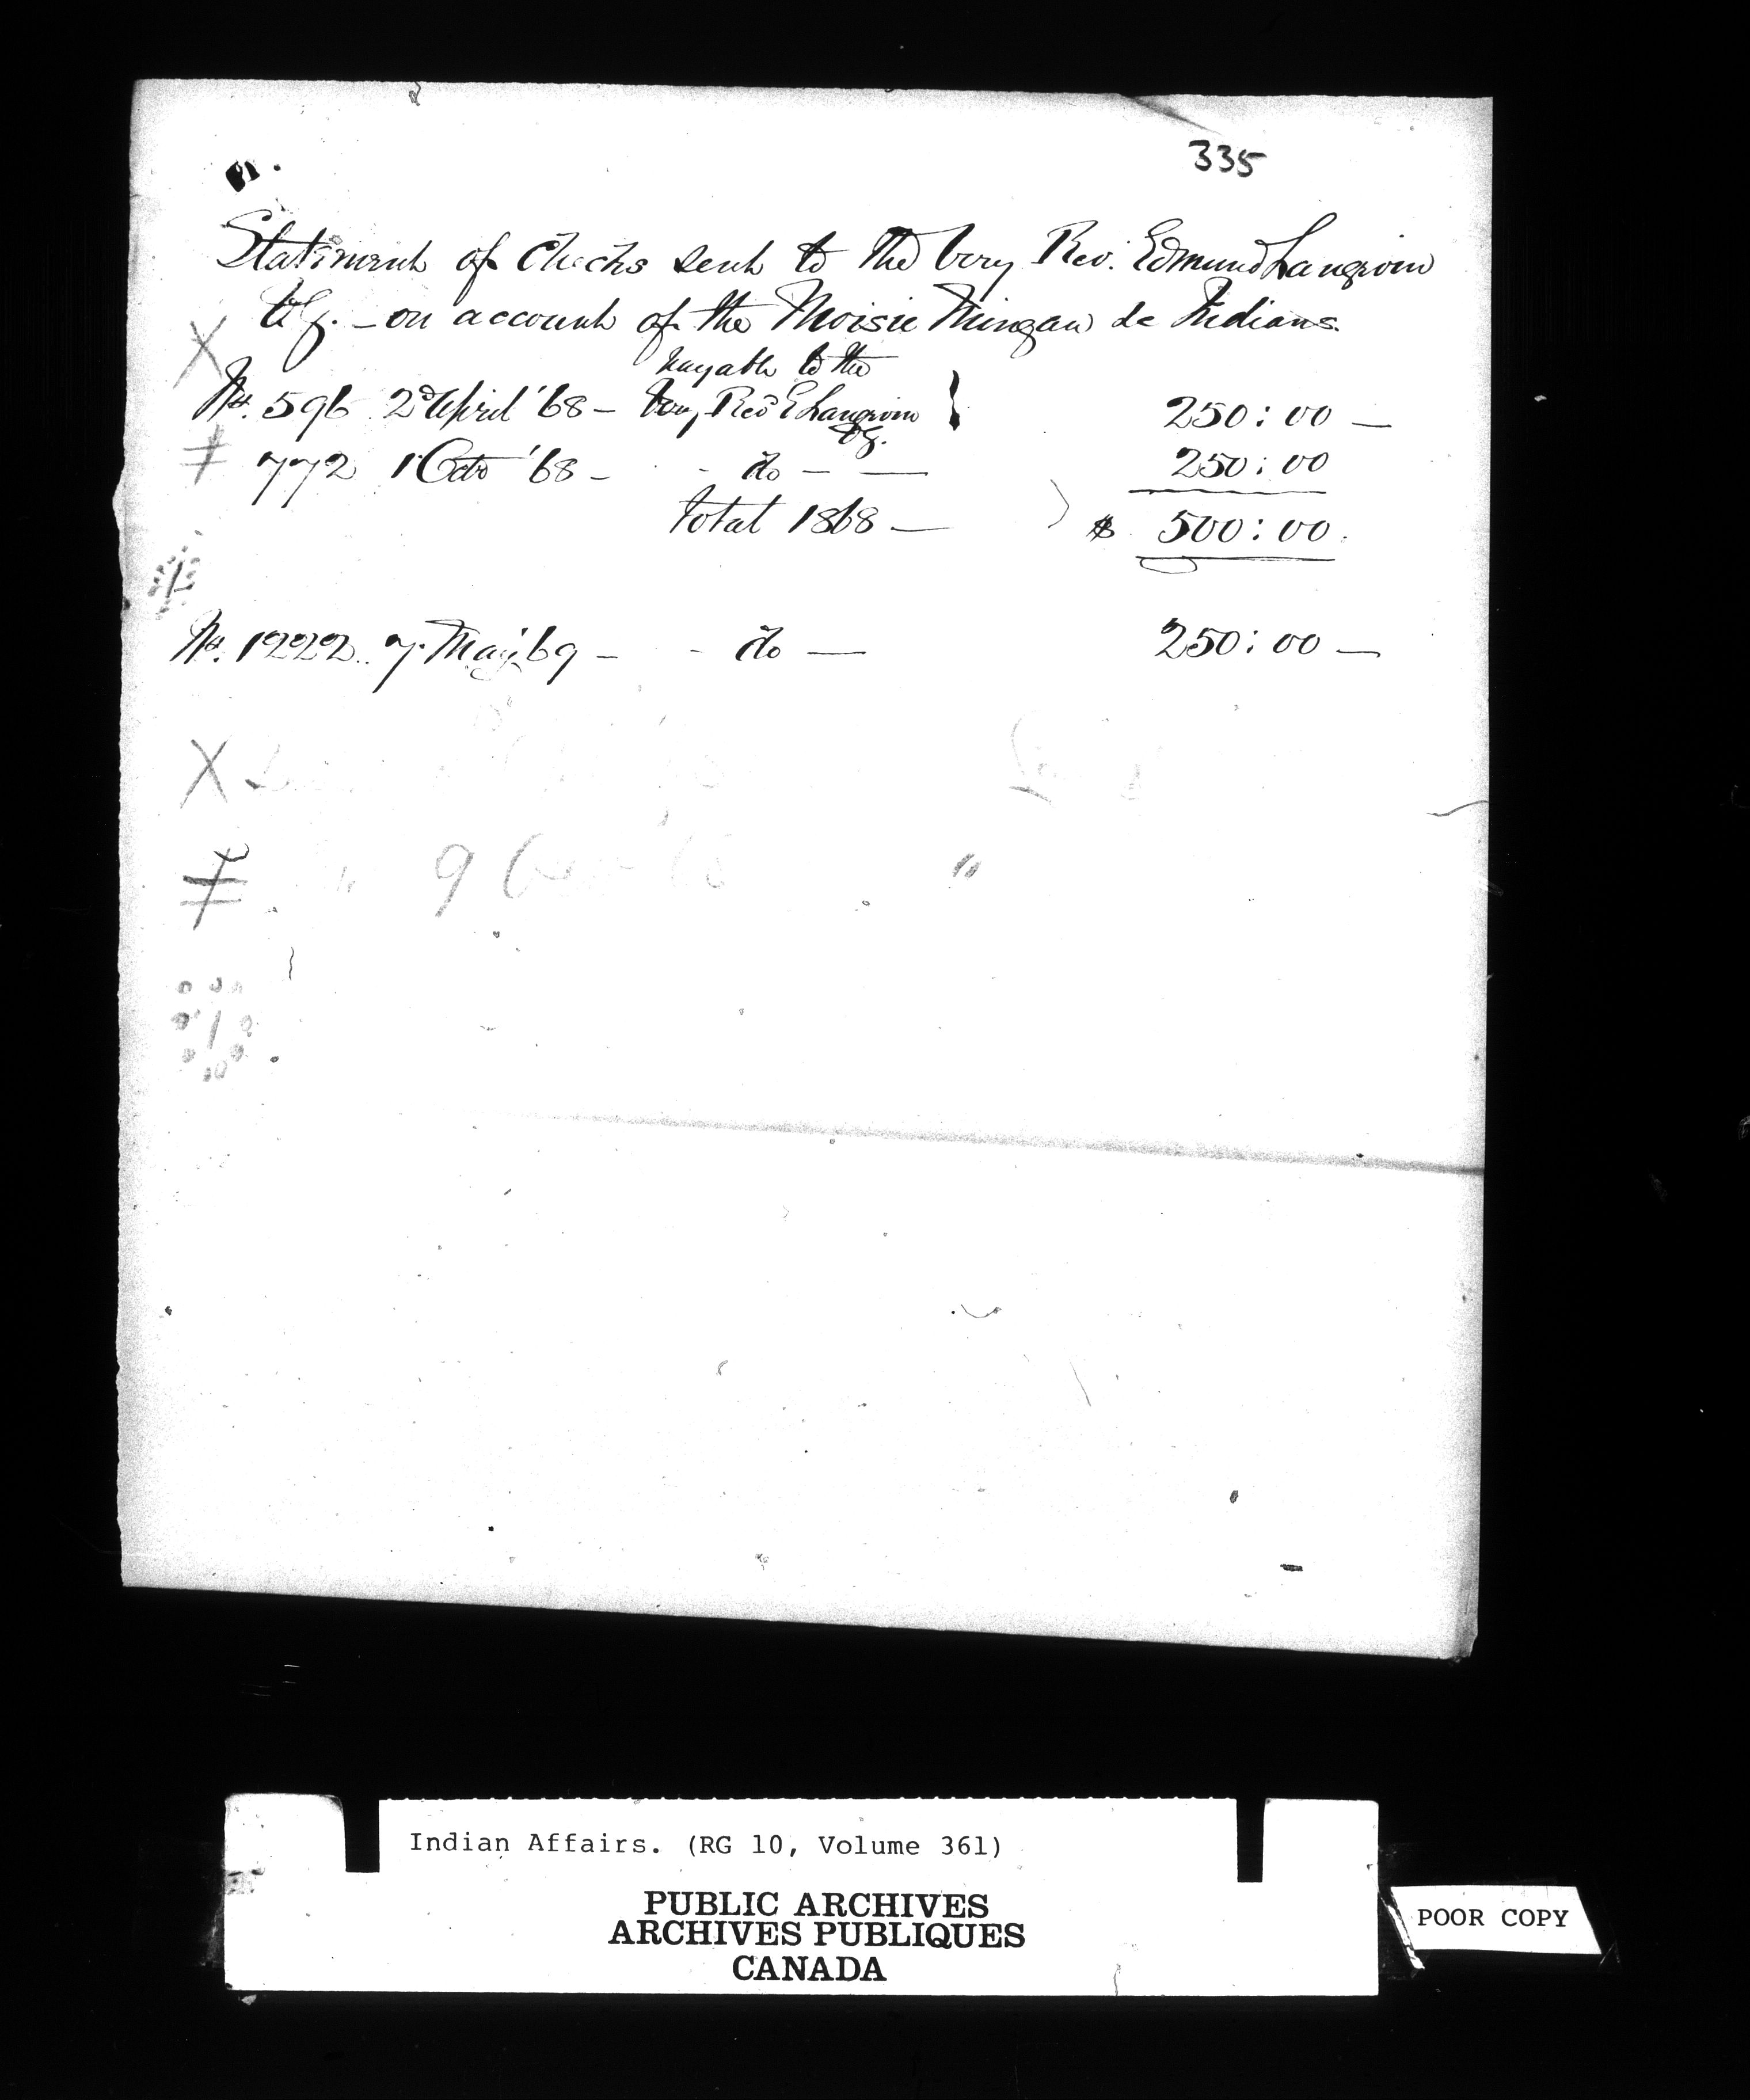 335
Statement of Checks sent to the Very Rev. Edmund Langevin
V.G. - on account of the Moisie Mingan &c Indians.
payable to the
No. 596 2d April '68 - Very Revd E Langevin } 250:00 -
V.G.
772 1 Octo '68 - - do - — 250:00
Total 1868 — $ 500:00.
No. 1222. 7. May '69 - - do — 250:00 -
X
9
"
Indian Affairs. (RG 10, Volume 361)
PUBLIC ARCHIVES
ARCHIVES PUBLIQUES
CANADA
POOR COPY